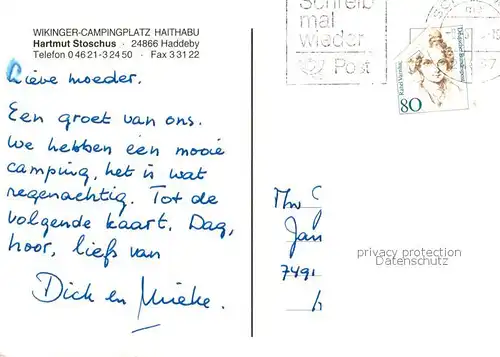 WIKINGER-CAMPINGPLATZ HAITHABU
Hartmut Stoschus · 24866 Haddeby
Telefon 0 46 21-3 24 50 · Fax 3 31 22
Lieve moeder.
Een groet van ons.
We hebben een mooie
camping, het is wat
regenachtig. Tot de
volgende kaart. Dag,
hoor, liefs van
Dick en Mieke.
Schreib
mal
wieder
Post
80
Deutsche Bundespost
Mw
Jan
7491
privacy protection
Datenschutz